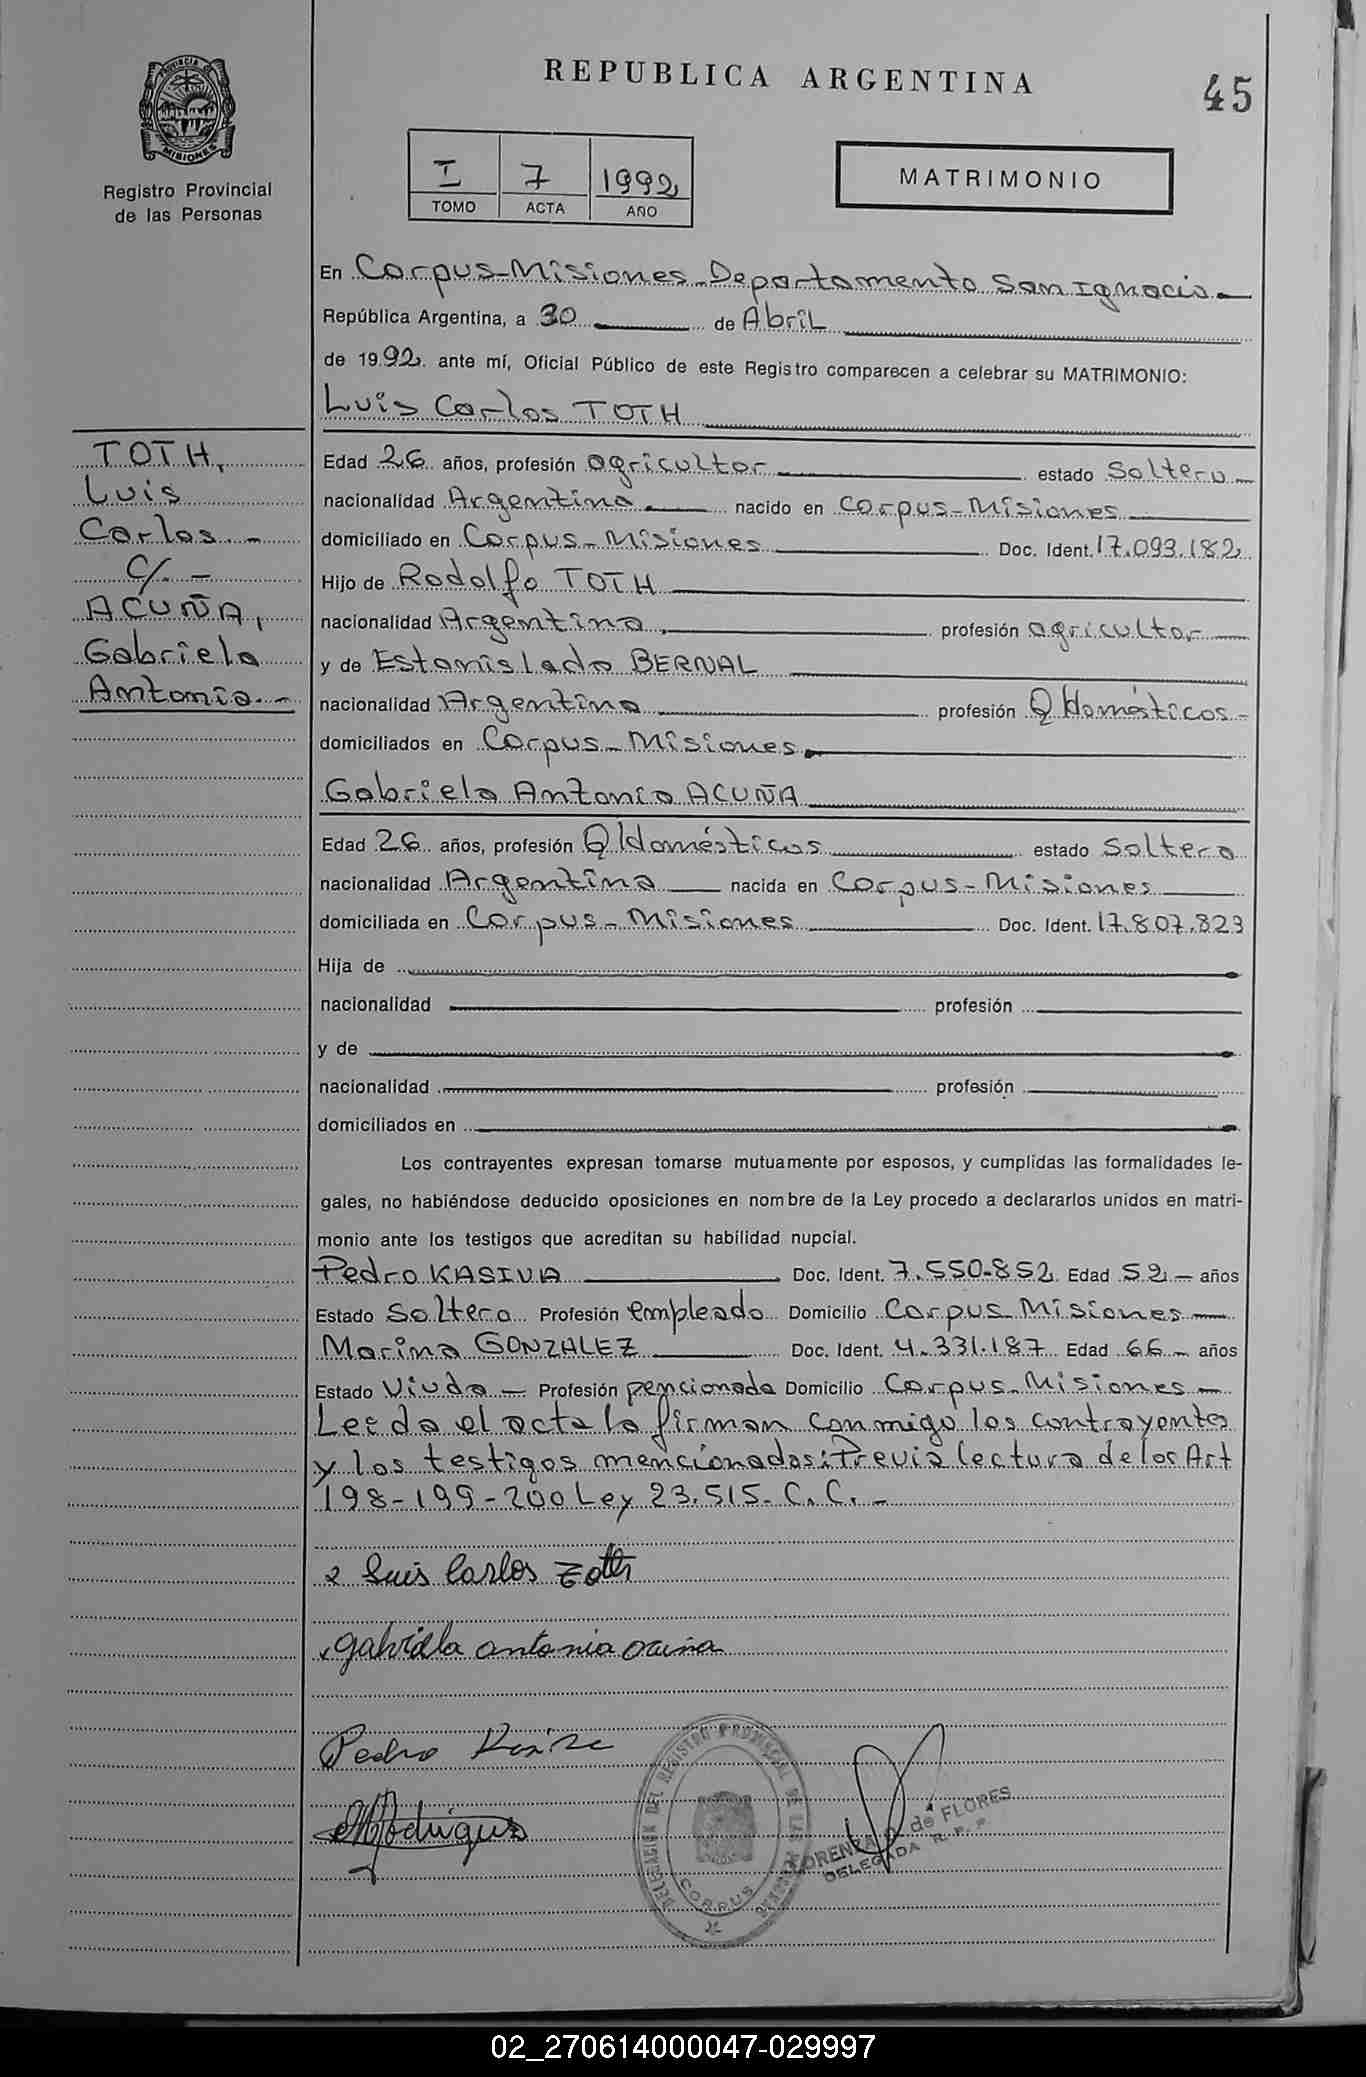 PROVINCIA DE
MISIONES
Registro Provincial
de las Personas
REPUBLICA ARGENTINA
45
I 7 1992
TOMO ACTA AÑO
MATRIMONIO
En Corpus-Misiones-Departamento San Ignacio-
República Argentina, a 30 de Abril
de 1992 ante mí, Oficial Público de este Registro comparecen a celebrar su MATRIMONIO:
Luis Carlos TOTH
TOTH,
Luis
Carlos.-
C/.-
ACUÑA,
Gabriela
Antonia.-
Edad 26 años, profesión agricultor estado Soltero
nacionalidad Argentina nacido en Corpus-Misiones
domiciliado en Corpus-Misiones Doc. Ident. 17.093.182
Hijo de Rodolfo TOTH
nacionalidad Argentina, profesión agricultor
y de Estanislada BERNAL
nacionalidad Argentina profesión Q/domésticos-
domiciliados en Corpus-Misiones
Gabriela Antonia ACUÑA
Edad 26 años, profesión Q/domésticos estado Soltera
nacionalidad Argentina nacida en Corpus-Misiones
domiciliada en Corpus-Misiones Doc. Ident. 17.807.823
Hija de
nacionalidad profesión
y de
nacionalidad profesión
domiciliados en
Los contrayentes expresan tomarse mutuamente por esposos, y cumplidas las formalidades le-
gales, no habiéndose deducido oposiciones en nombre de la Ley procedo a declararlos unidos en matri-
monio ante los testigos que acreditan su habilidad nupcial.
Pedro KASIVA Doc. Ident. 7.550.852 Edad 52.- años
Estado Soltero Profesión empleado Domicilio Corpus Misiones-
Marina GONZALEZ Doc. Ident. 4.331.187 Edad 66- años
Estado Viuda- Profesión pencionada Domicilio Corpus-Misiones-
Leida el acta la firman conmigo los contrayentes
y los testigos mencionados: Previa lectura de los Art
198-199-200 Ley 23.515. C.C.-
Luis Carlos Toth
gabriela antonia acuña
Pedro
DELEGACION DEL REGISTRO PROVINCIAL DE LAS PERSONAS
CORPUS
LORENZA de FLORES
DELEGADA R. P. P.
02_270614000047-029997